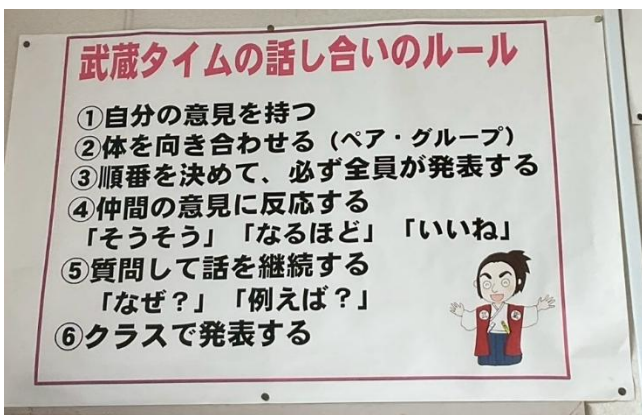 武蔵タイムの話し合いのルール
①自分の意見を持つ
②体を向き合わせる（ペア・グループ）
③順番を決めて、必ず全員が発表する
④仲間の意見に反応する
「そうそう」「なるほど」「いいね」
⑤質問して話を継続する
「なぜ？」「例えば？」
⑥クラスで発表する